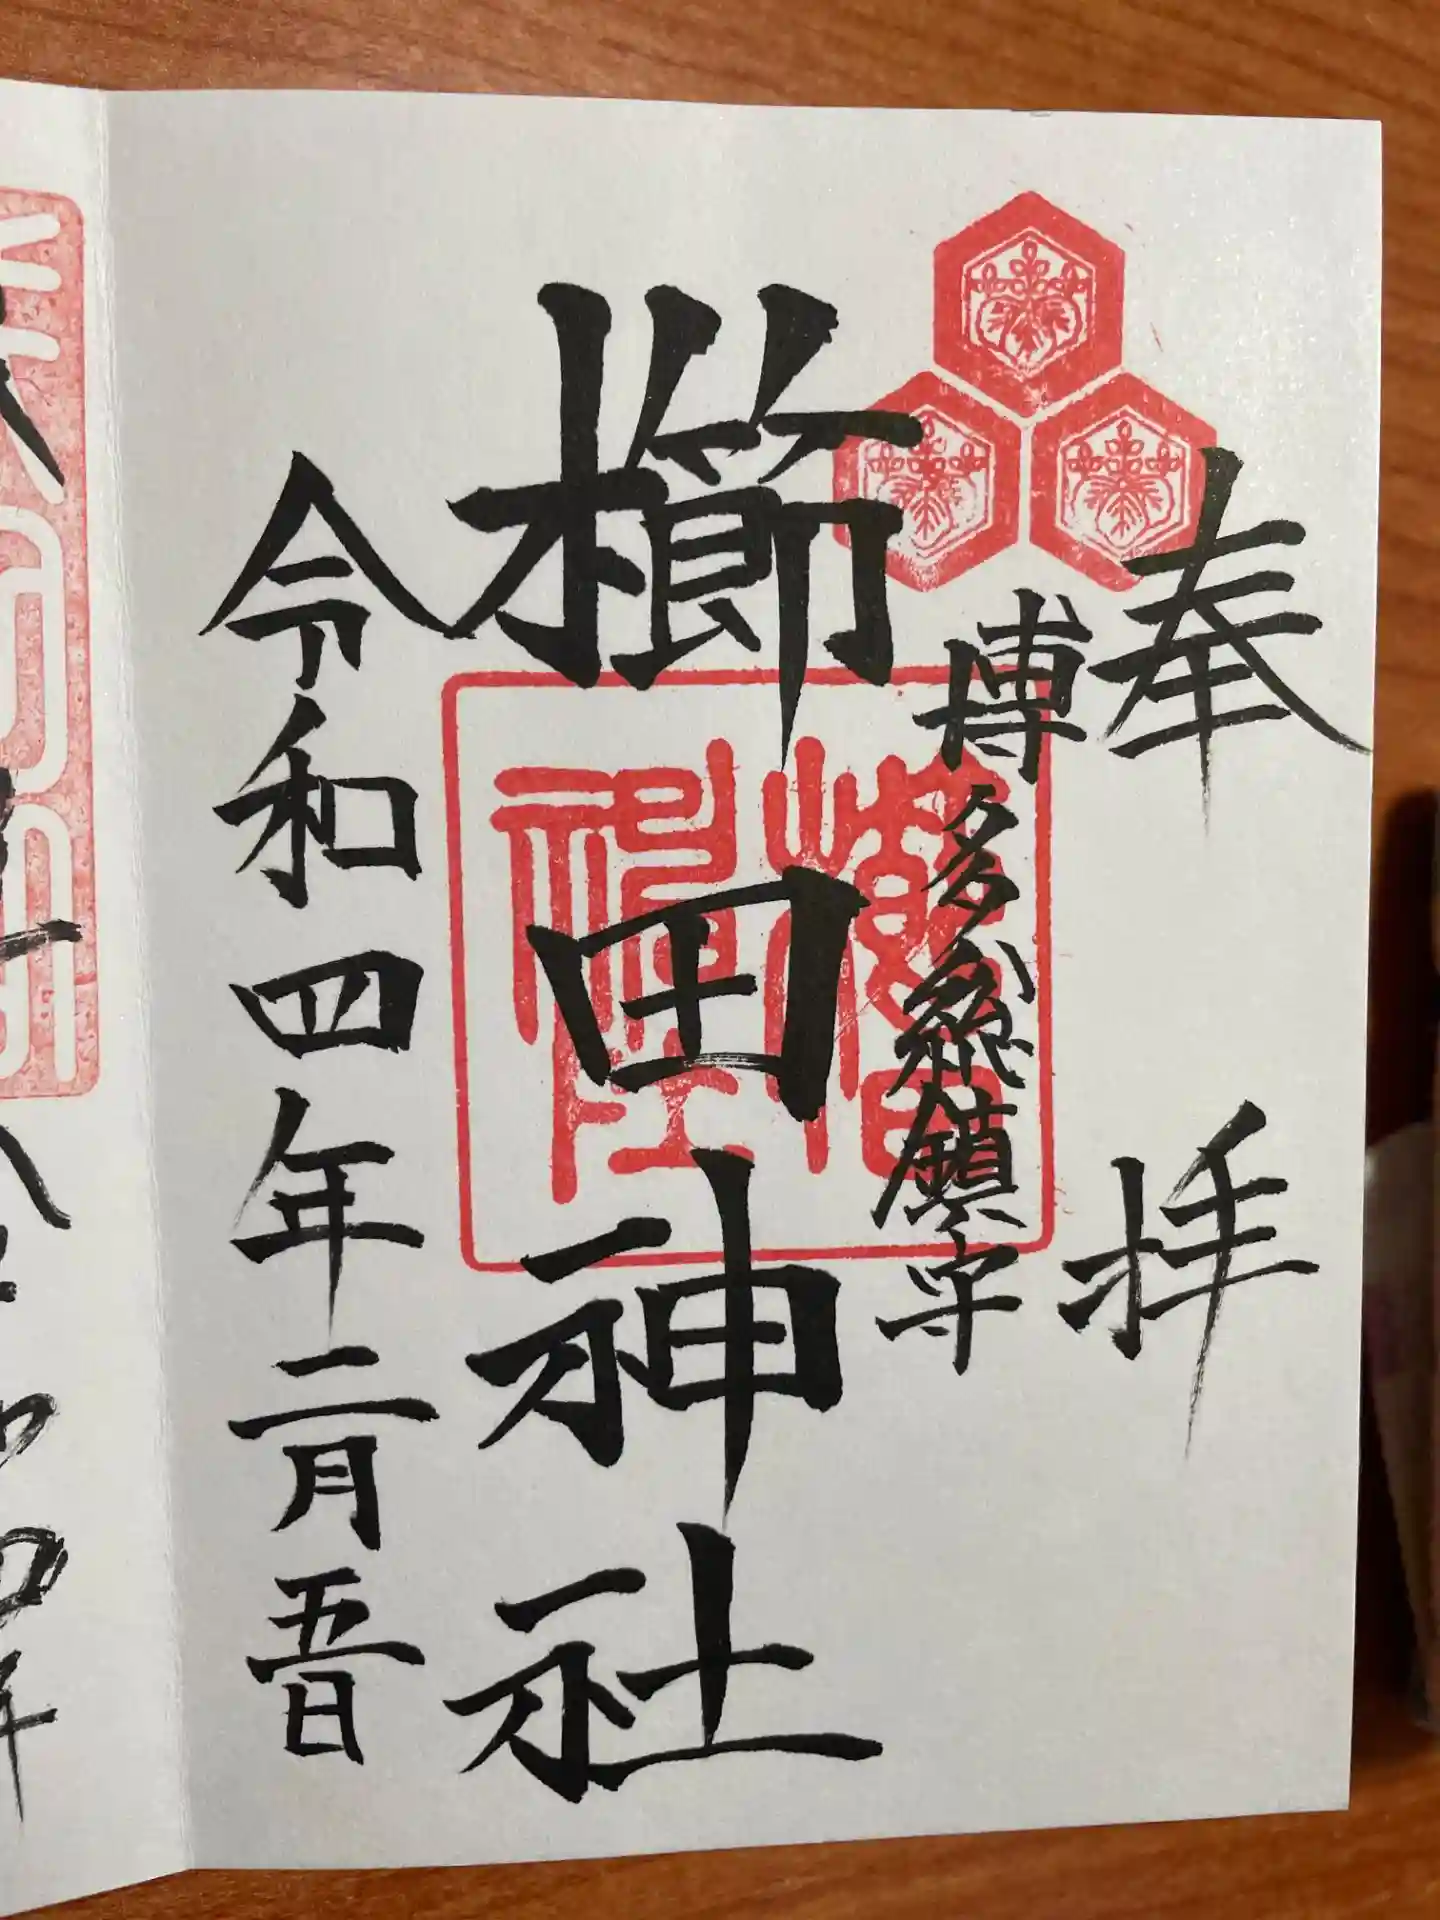 奉拝
博多総鎮守
櫛田神社
櫛田神社
令和四年二月五日